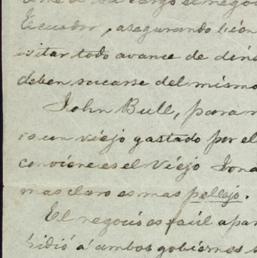 cargo el negoc
Ecuador, asegurando
evitar todo avance de
deben sacarse del mismo
John Bull, para
es un viejo gastado por el
conviene es el Viejo Jona
mas claro es mas pellejo.
El negocio es facil
pidió á ambos gobiernos